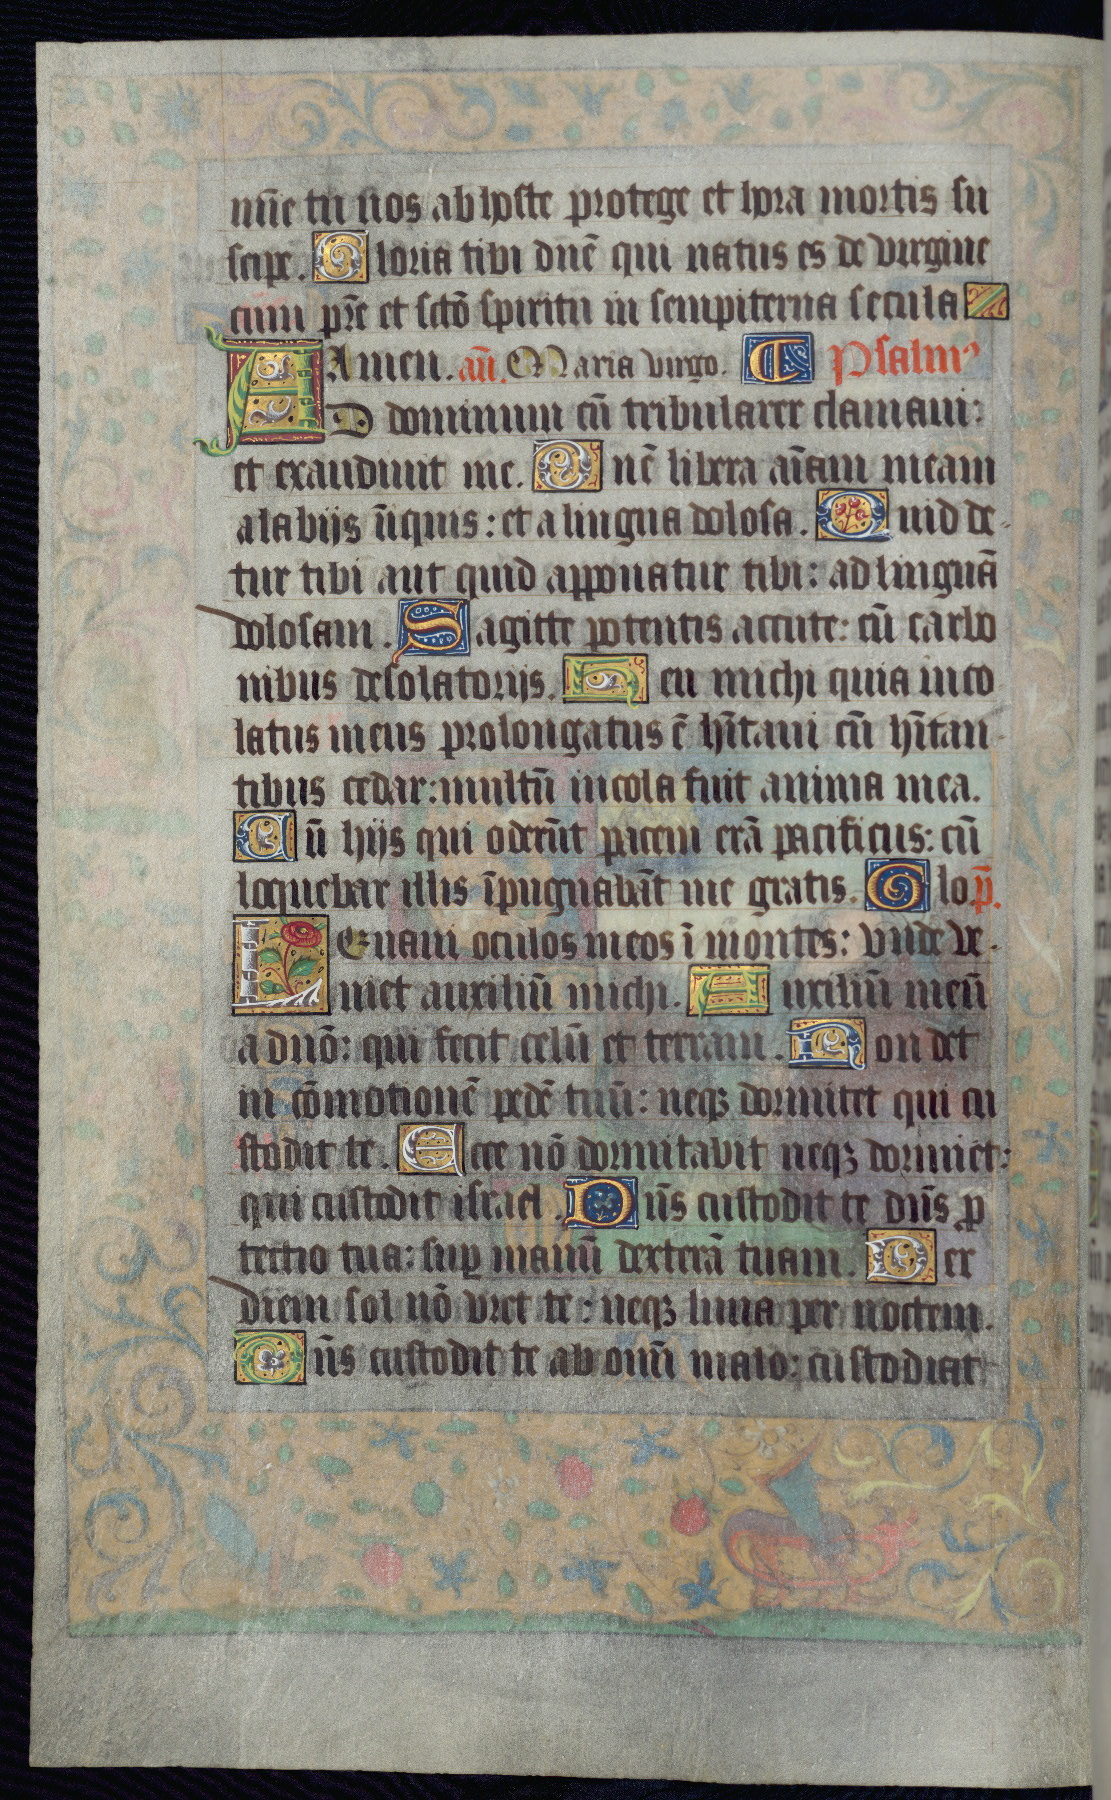 nr̄ie tu nos ab hoste protege et hora mortis su
scipe. Gloria tibi dnē qui natus es de virgine
cum pr̄e et sctō spiritu in sempiterna secula
Amen. an̄. Maria virgo. Psalmꝰ
AD dominum cū tribularer clamaui:
et exaudiuit me. Dnē libera aīam meam
a labijs īiquis: et a lingua dolosa. Quid de-
tur tibi aut quid apponatur tibi: ad linguā
dolosam. Sagitte potentis accute: cū carbo
nibus desolatorijs. Heu michi quia inco
latus meus prolongatus ē hītaui cū hītan-
tibus cedar: multū incola fuit anima mea.
Cū hijs qui oderūt pacem erā pacificus: cū
loquebar illis īpugnabāt me gratis. Glo.p̄.
Leuaui oculos meos ī montes: vnde ve-
niet auxiliū michi. Auxiliū meū
a dnō: qui fecit celū et terram. Non det
in cōmotionē pedē tuū: neqꝫ dormitet qui cu
stodit te. Ecce nō dormitabit neqꝫ dormiet:
qui custodit israel. Dn̄s custodit te dn̄s ꝓ
tectio tua: suꝑ manū dexterā tuam. Per
diem sol nō vret te: neqꝫ luna per noctem.
Dn̄s custodit te ab omī malo: custodiat